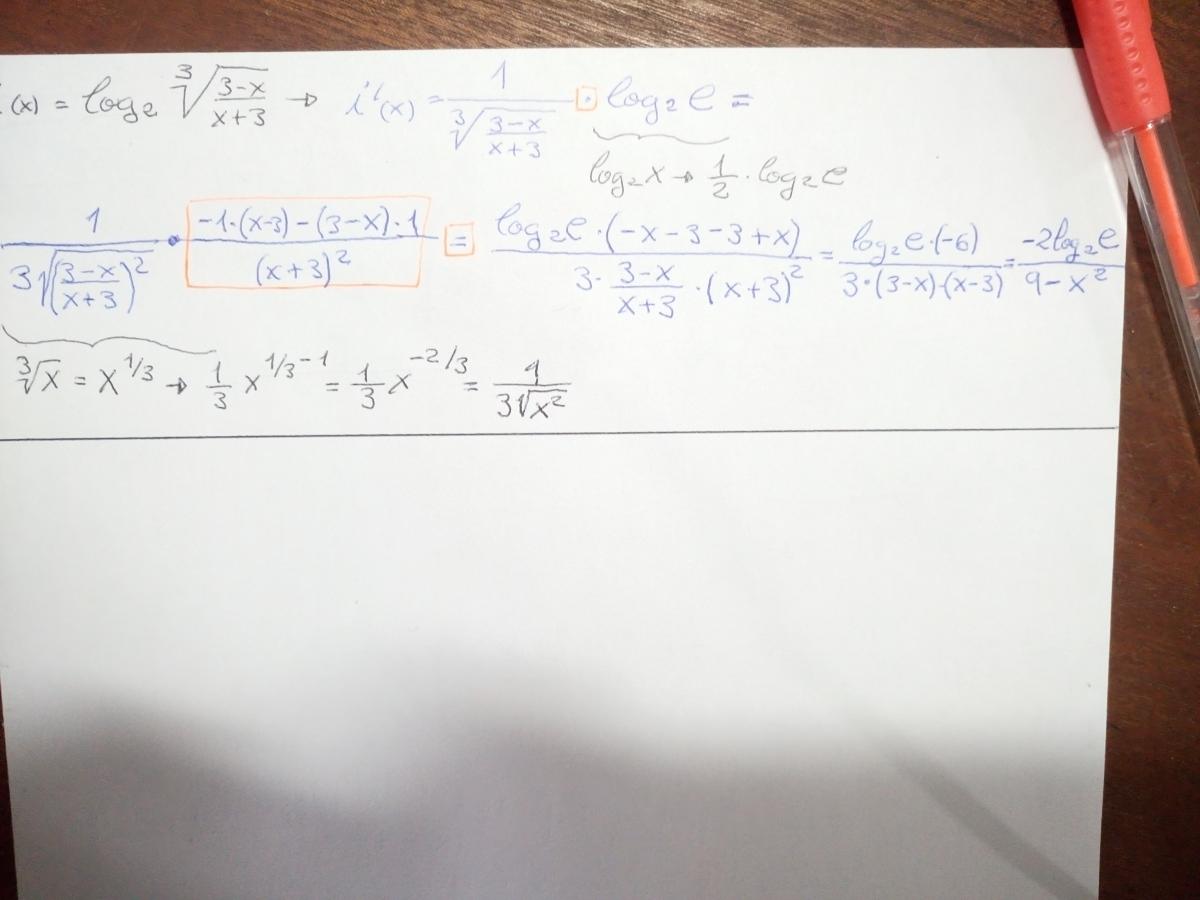 (x) = log₂ ∛((3-x)/(x+3)) → i'(x) = 1/∛((3-x)/(x+3)) · log₂e =
log₂x → 1/2 · log₂e
1/(3√((3-x)/(x+3))²) · (-1·(x-3)-(3-x)·1)/(x+3)² = (log₂e·(-x-3-3+x))/(3·(3-x)/(x+3)·(x+3)²) = (log₂e·(-6))/(3·(3-x)·(x-3)) = (-2log₂e)/(9-x²)
∛x = x^(1/3) → 1/3 x^(1/3-1) = 1/3 x^(-2/3) = 1/(3√x²)